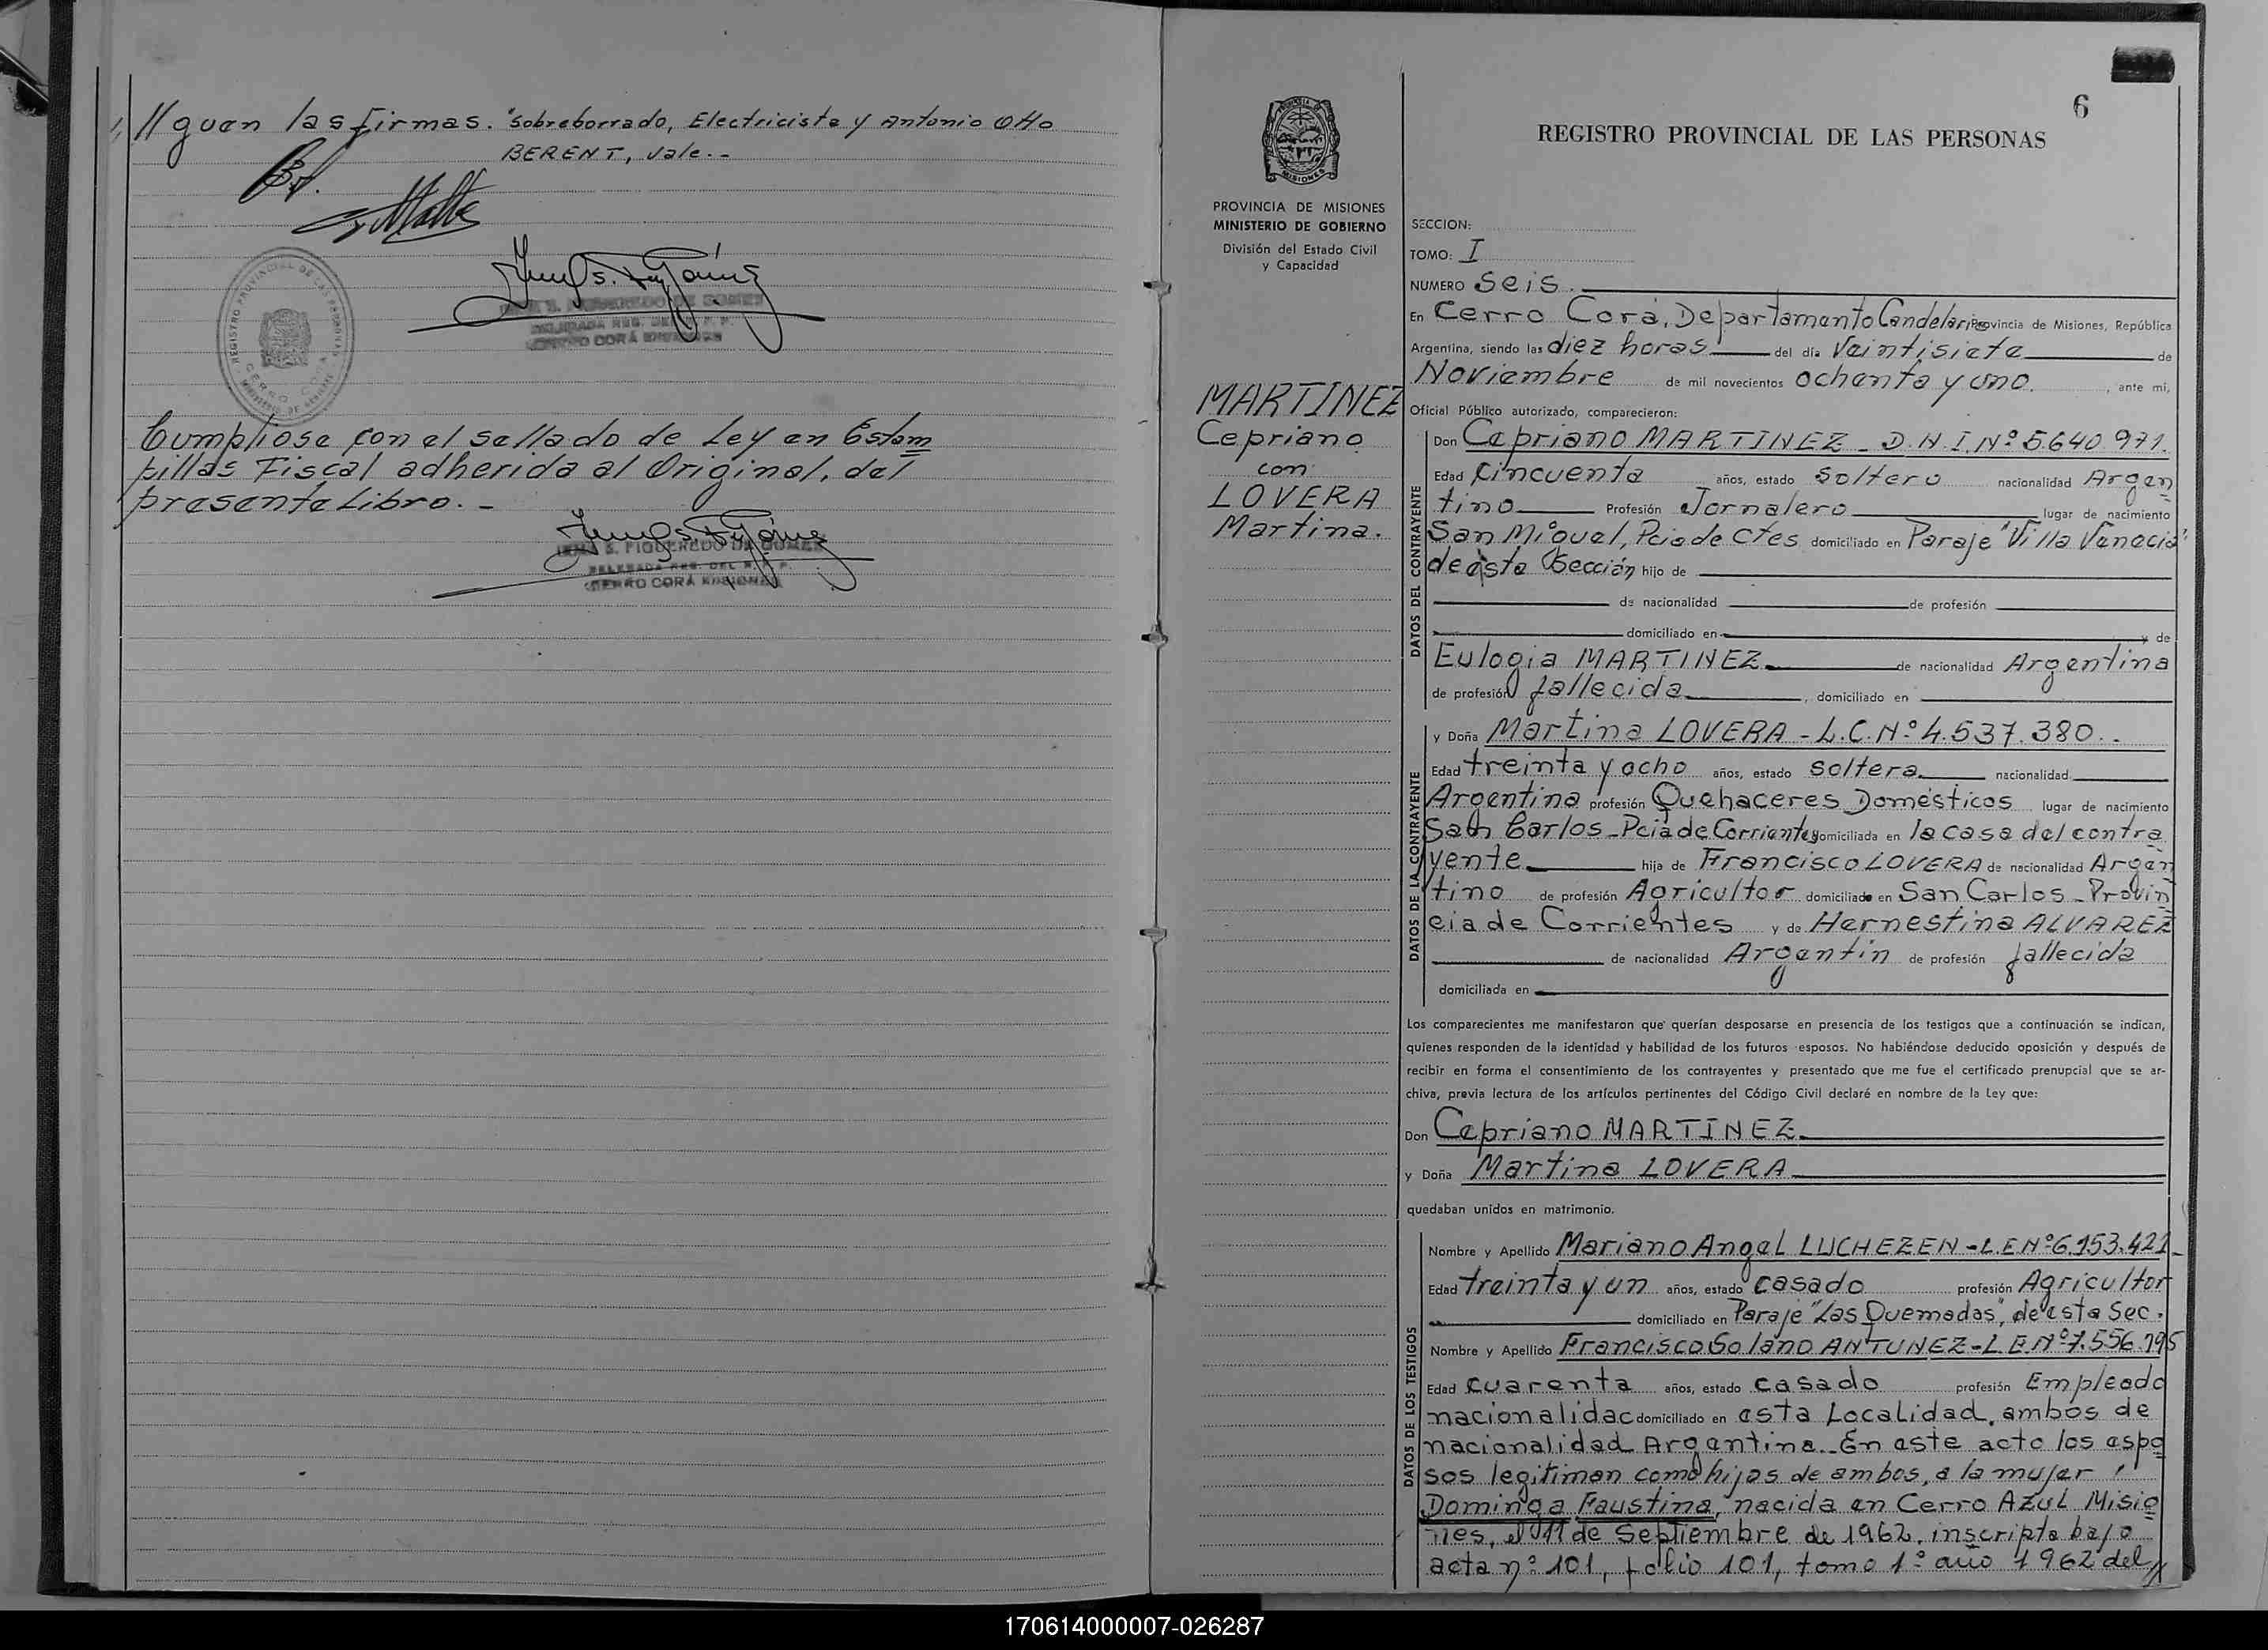 //guen las firmas. "Sobreborrado, Electricista y Antonio Otto
BERENT, vale.-
REGISTRO PROVINCIAL DE LAS PERSONAS
CERRO CORÁ
Cumpliose con el sellado de Ley en Estam
pillas Fiscal adherida al Original, del
presente Libro.-
S. FIGUEREDO DE GOMEZ
DELEGADA REG. DEL R. P. P.
CERRO CORÁ MISIONES
6
REGISTRO PROVINCIAL DE LAS PERSONAS
PROVINCIA DE MISIONES
MINISTERIO DE GOBIERNO
División del Estado Civil
y Capacidad
MARTINEZ
Cepriano
con
LOVERA
Martina.
SECCION:
TOMO: I
NUMERO Seis.
En Cerro Corá, Departamento Candelaria Provincia de Misiones, República
Argentina, siendo las diez horas del día Veintisiete de
Noviembre de mil novecientos ochenta y uno. , ante mí,
Oficial Público autorizado, comparecieron:
DATOS DEL CONTRAYENTE
Don Cepriano MARTINEZ - D.N.I. Nº 5.640.971.
Edad Cincuenta años, estado Soltero nacionalidad Argen
tino Profesión Jornalero lugar de nacimiento
San Miguel, Pcia de Ctes domiciliado en Paraje "Villa Venecia"
de esta Sección hijo de
de nacionalidad de profesión
domiciliado en y de
Eulogia MARTINEZ de nacionalidad Argentina
de profesión fallecida , domiciliado en
DATOS DE LA CONTRAYENTE
y Doña Martina LOVERA - L.C. Nº 4.537.380..
Edad treinta y ocho años, estado Soltera nacionalidad
Argentina profesión Quehaceres Domésticos lugar de nacimiento
San Carlos - Pcia de Corrientes domiciliada en la casa del contra
yente hija de Francisco LOVERA de nacionalidad Argen
tino de profesión Agricultor domiciliado en San Carlos - Provin
cia de Corrientes y de Hernestina ALVAREZ
de nacionalidad Argentin de profesión fallecida
domiciliada en
Los comparecientes me manifestaron que querían desposarse en presencia de los testigos que a continuación se indican,
quienes responden de la identidad y habilidad de los futuros esposos. No habiéndose deducido oposición y después de
recibir en forma el consentimiento de los contrayentes y presentado que me fue el certificado prenupcial que se ar-
chiva, previa lectura de los artículos pertinentes del Código Civil declaré en nombre de la Ley que:
Don Cepriano MARTINEZ
y Doña Martina LOVERA
quedaban unidos en matrimonio.
DATOS DE LOS TESTIGOS
Nombre y Apellido Mariano Angel LUCHEZEN - L.E Nº 6.153.421
Edad treinta y un años, estado Casado profesión Agricultor
domiciliado en Paraje "Las Quemadas", de esta Sec.
Nombre y Apellido Francisco Solano ANTUNEZ - L.E. Nº 7.556.195
Edad Cuarenta años, estado Casado profesión Empleado
nacionalidad domiciliado en esta Localidad, ambos de
nacionalidad Argentina.- En este acto los espo
sos legitiman como hijos de ambos, a la mujer
Dominga Faustina, nacida en Cerro Azul Misio
nes, el 11 de Septiembre de 1962, inscripta bajo
acta nº 101, folio 101, tomo 1º año 1962 del//
170614000007-026287